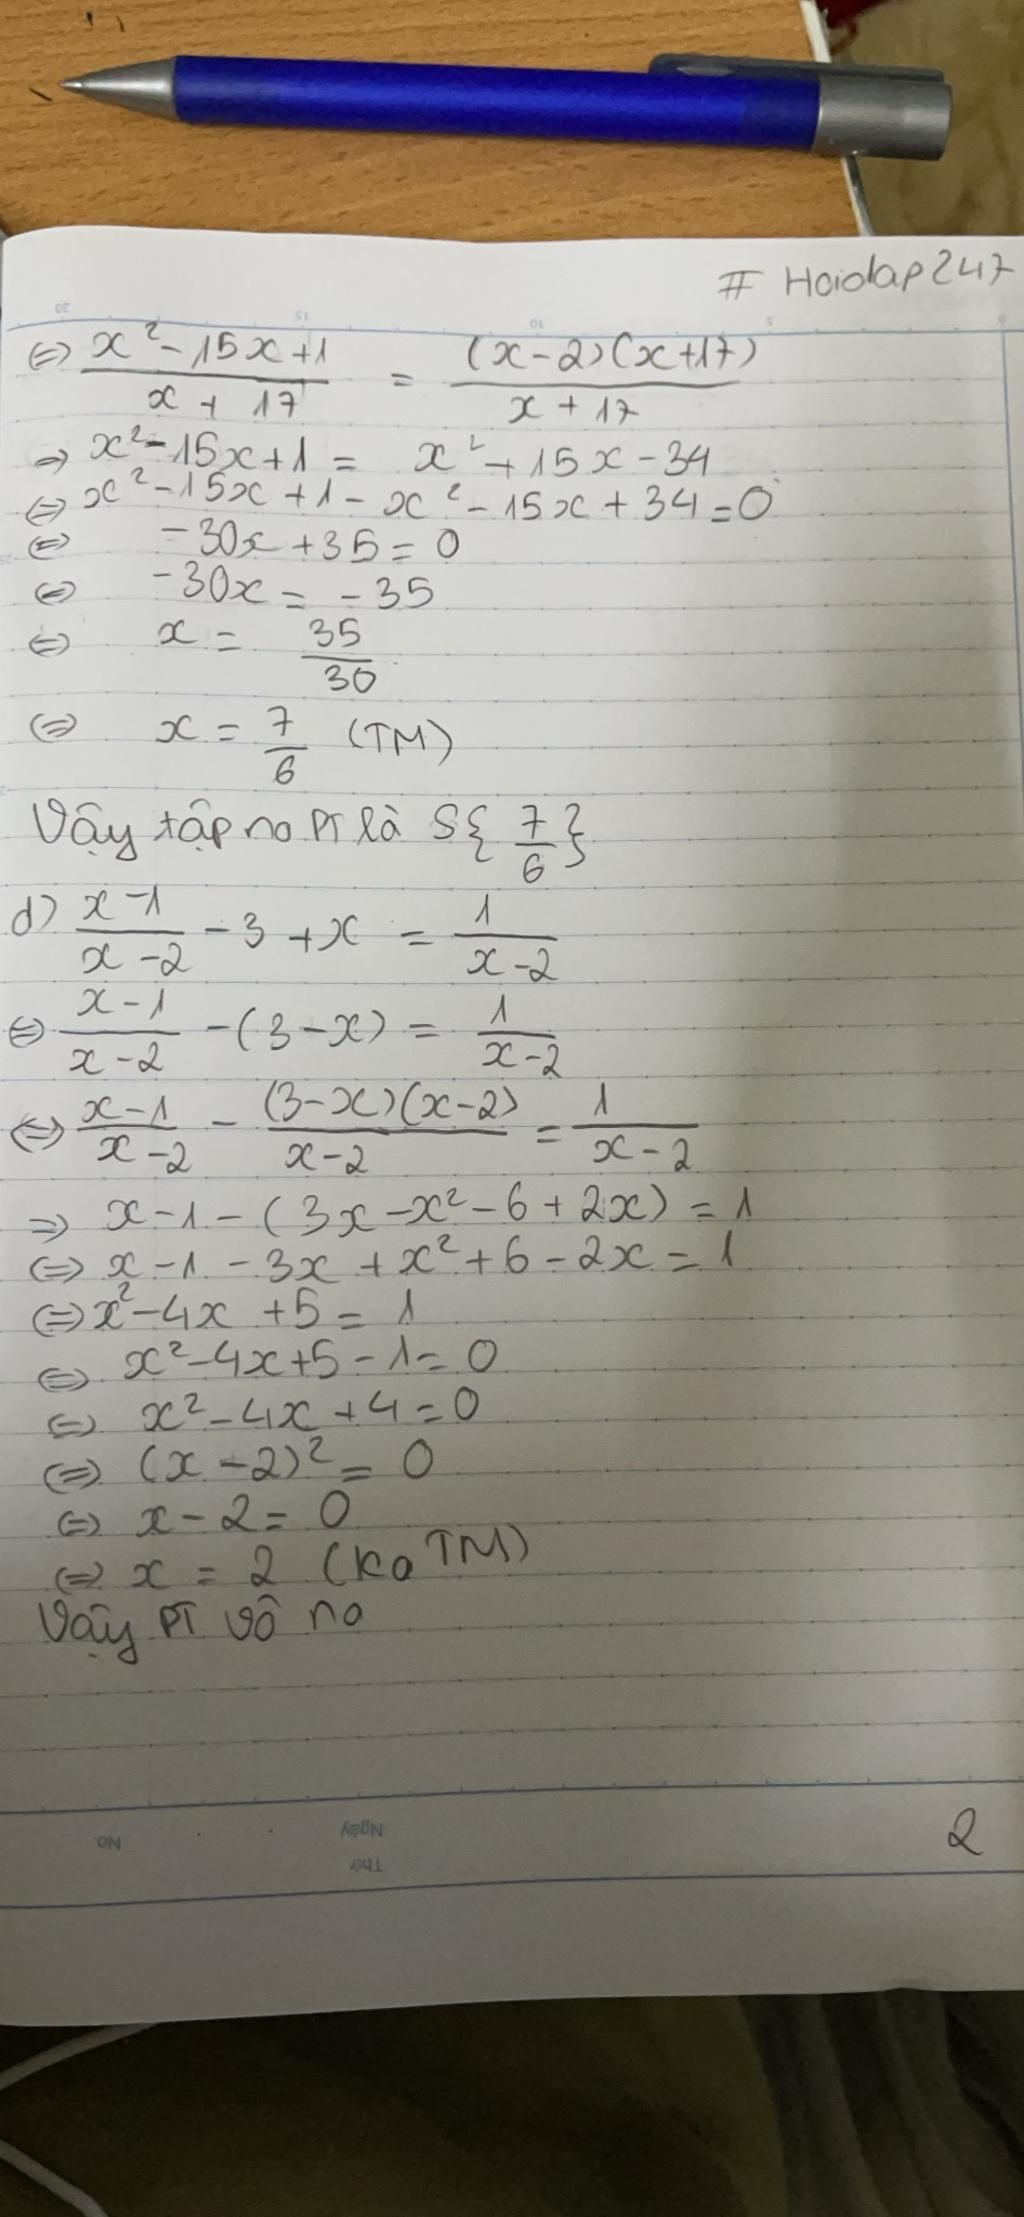 # Hoidap247
20 15 10 5 0
(=) x² - 15x + 1 / x + 17 = (x - 2)(x + 17) / x + 17
=> x² - 15x + 1 = x² + 15x - 34
(=) x² - 15x + 1 - x² - 15x + 34 = 0
(=) -30x + 35 = 0
(=) -30x = -35
(=) x = 35/30
(=) x = 7/6 (TM)
Vậy tập no PT là S{7/6}
d) x - 1 / x - 2 - 3 + x = 1 / x - 2
(=) x - 1 / x - 2 - (3 - x) = 1 / x - 2
(=) x - 1 / x - 2 - (3 - x)(x - 2) / x - 2 = 1 / x - 2
=> x - 1 - (3x - x² - 6 + 2x) = 1
(=) x - 1 - 3x + x² + 6 - 2x = 1
(=) x² - 4x + 5 = 1
(=) x² - 4x + 5 - 1 = 0
(=) x² - 4x + 4 = 0
(=) (x - 2)² = 0
(=) x - 2 = 0
(=) x = 2 (Ko TM)
Vậy PT vô no
2
No.
Ngày
Thứ